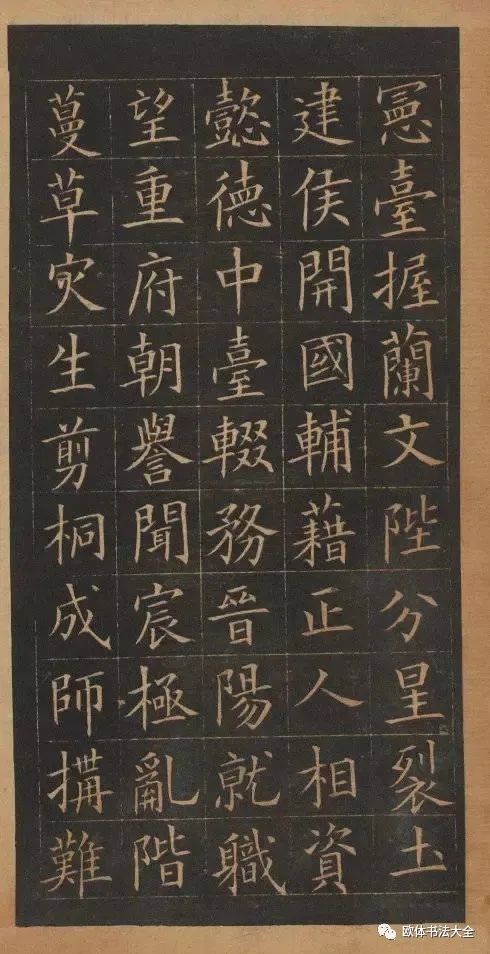 憲臺握蘭文陛分星裂土
建侯開國輔藉正人相資
懿德中臺輟務晉陽就職
望重府朝譽聞宸極亂階
蔓草灾生剪桐成師搆難
欧体书法大全